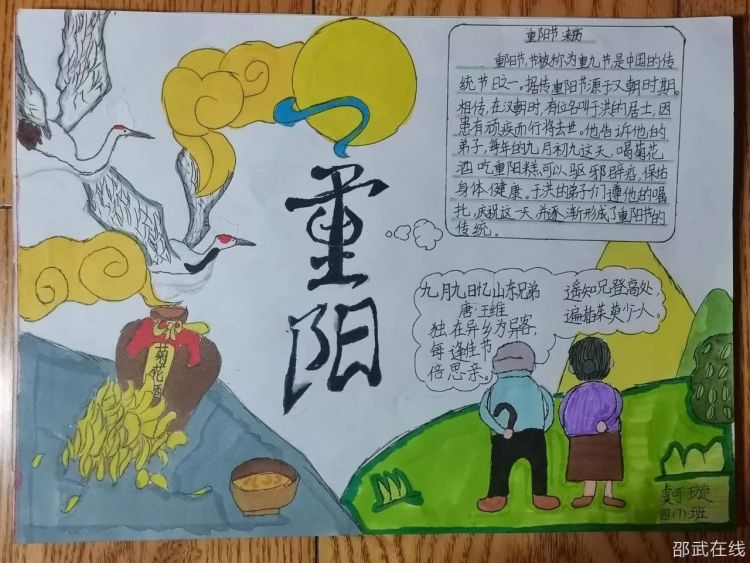 重阳节来历
重阳节,节被称为重九节是中国的传
统节日之一。据传重阳节源于汉朝时期。
相传,在汉朝时,有位名叫于洪的居士,因
患有顽疾而行将去世。他告诉他的
弟子,每年的九月初九这天,喝菊花
酒吃重阳糕,可以驱邪辟疫,保佑
身体健康。于洪的弟子们遵他的嘱
托,庆祝这一天,并逐渐形成了重阳节的
传统。
重
阳
九月九日忆山东兄弟
唐·王维
独在异乡为异客,
每逢佳节
倍思亲。
遥知兄登高处,
遍插茱萸少人。
菊花香
虞可璇
四(1)班
邵武在线